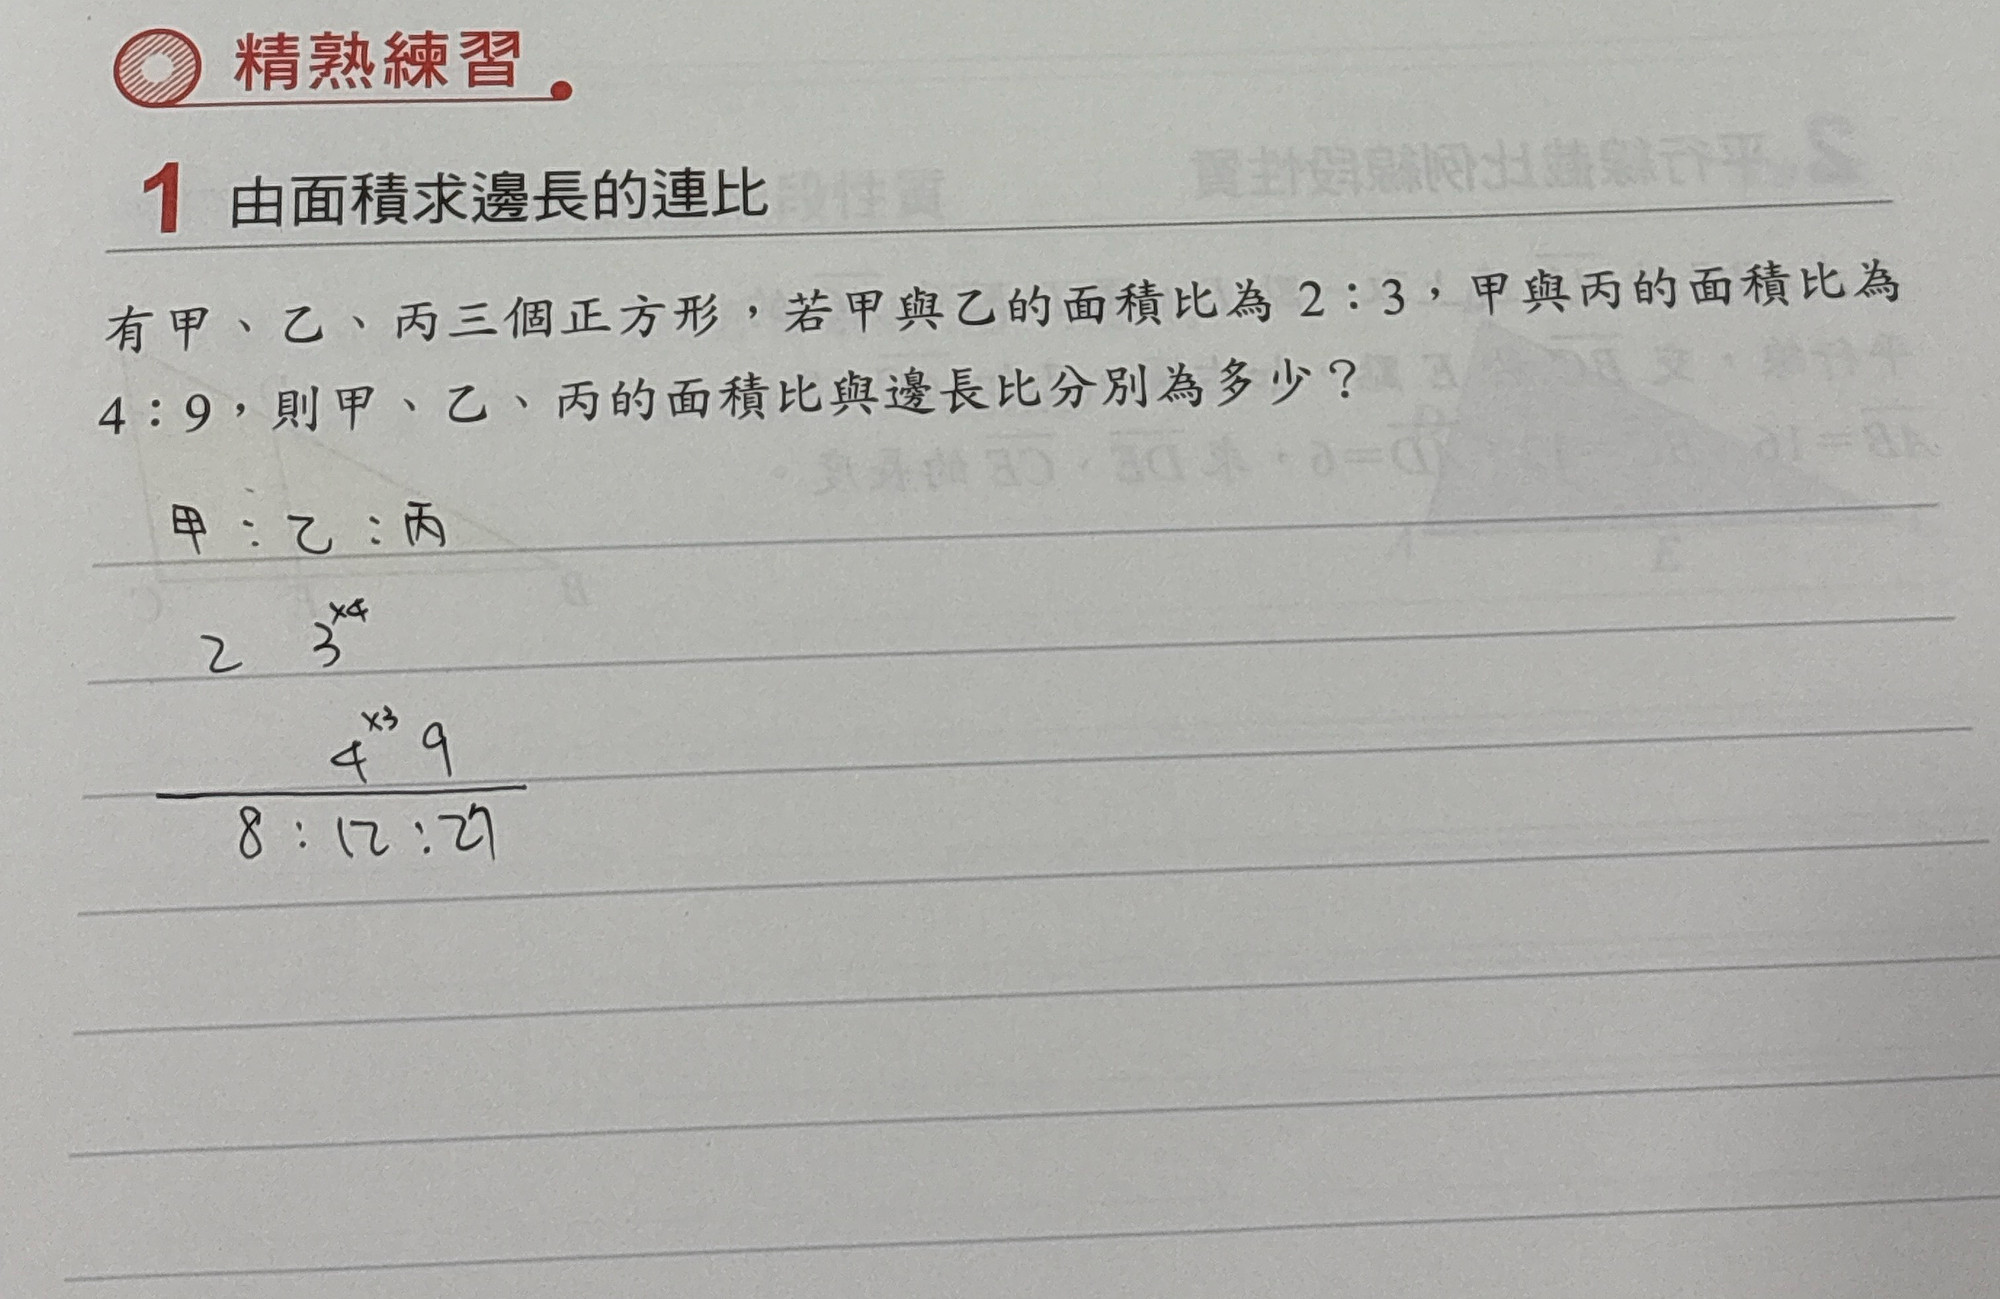 精熟練習
1 由面積求邊長的連比
有甲、乙、丙三個正方形，若甲與乙的面積比為 2：3，甲與丙的面積比為
4：9，則甲、乙、丙的面積比與邊長比分別為多少？
甲：乙：丙
2 3×4
4×3 9
8：12：27